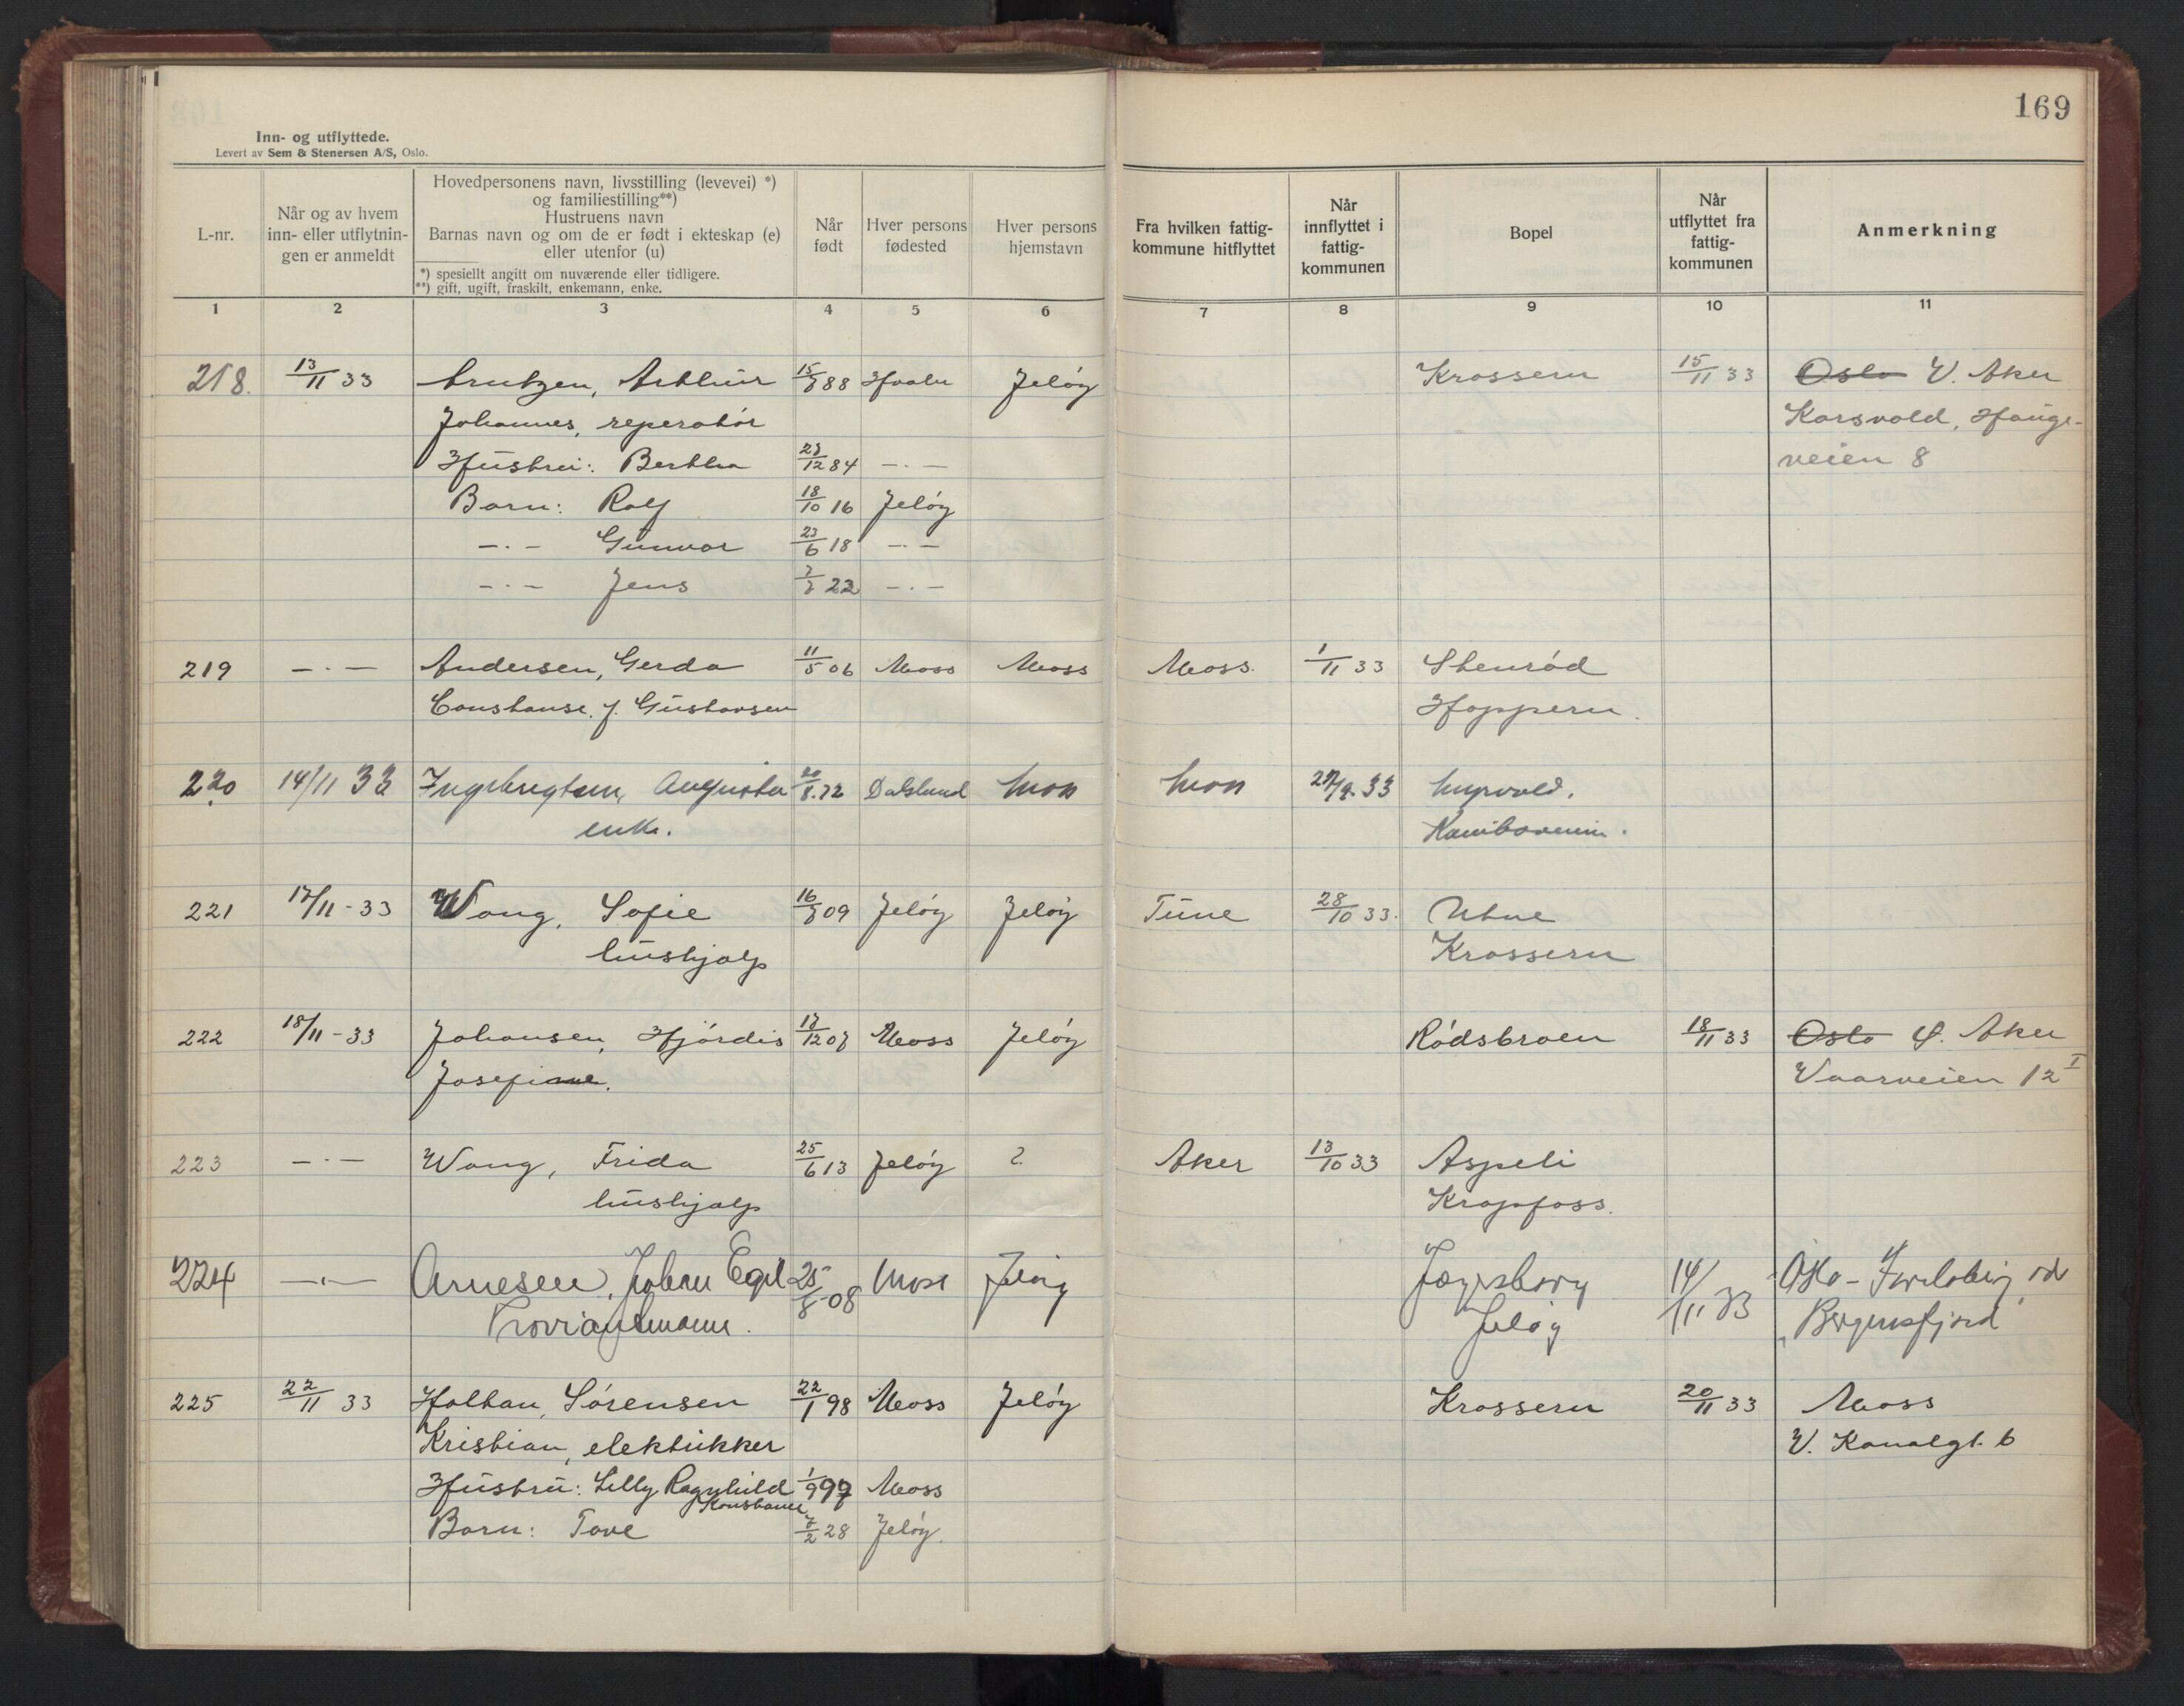 169
Inn- og utflyttede.
Levert av Sem & Stenersen A/S, Oslo.
L-nr.
Når og av hvem
inn- eller utflytnin-
gen er anmeldt
Hovedpersonens navn, livsstilling (levevei) *)
og familiestilling**)
Hustruens navn
Barnas navn og om de er født i ekteskap (e)
eller utenfor (u)
*) spesiellt angitt om nuværende eller tidligere.
**) gift, ugift, fraskilt, enkemann, enke.
Når
født
Hver persons
fødested
Hver persons
hjemstavn
Fra hvilken fattig-
kommune hitflyttet
Når
innflyttet i
fattig-
kommunen
Bopel
Når
utflyttet fra
fattig-
kommunen
Anmerkning
1 2 3 4 5 6 7 8 9 10 11
218. 13/11 33 Arntzen, Arthur 88 Jeløy Krossern 15/11 33 Oslo V. Aker
Johannes, reperatør Korsvold, Hauge-
Hustru: Bertha 84 -.- veien 8
Barn: Rolf 18/10 16 Jeløy
-.- Gunvor 23/6 18 -.-
-.- Jens 22 -.-
219 -.- Andersen, Gerda 11/5 06 Moss Moss Moss. 1/11 33 Stenrød
Constanse. f. Gustavsen Hoppern.
220 14/11 33 Ingebrigtsen, Augusta 20/8.72 Dalsland Moss Moss 33 Myrvold.
enke. Kamboveien.
221 17/11-33 Wang, Sofie 09 Jeløy Jeløy Tune 28/10 33. Utne
hushjælp Krossern
222 18/11-33 Johansen, Hjørdis 07 Moss Jeløy Rødsbroen 18/11 33 Oslo Ø. Aker
Josefine. Vaarveien 12 I
223 -.- Wang, Frida 25/6 13 Jeløy ? Aker 13/10 33 Aspeli
hushjælp Kropfoss.
224 -.- Arnesen, Johan Egil 25/8-08 Moss Jeløy Jægersborg 14/11 33 Oslo -
Proviantmann. Jeløy "Bergensfjord"
225 22/11 33 Halhan, Sørensen 22/1 98 Moss Jeløy Krossern 20/11 33 Moss
Kristian, elektrikker V. Kanalgt. 6
Hustru: Lilly Ragnhild 1/9 97 Moss
Konstanse
Barn: Tove 28 Jeløy.